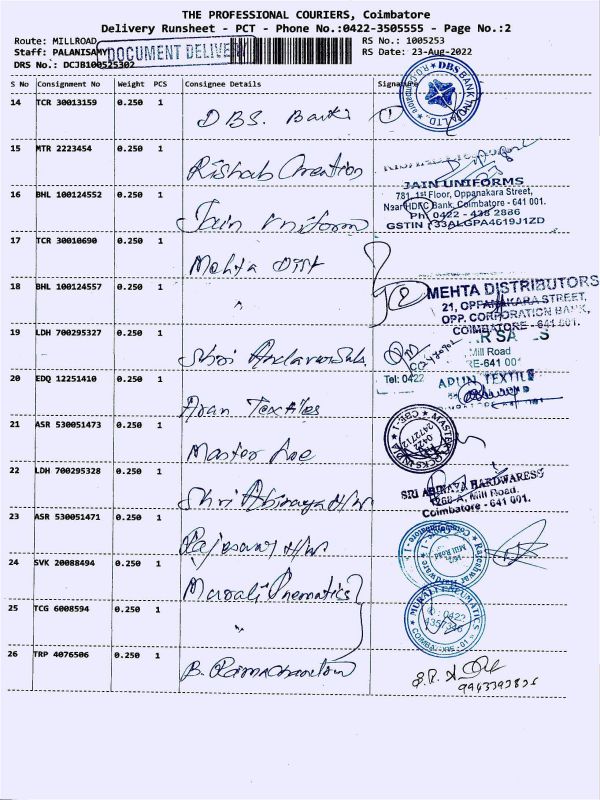 THE PROFESSIONAL COURIERS, Coimbatore
Delivery Runsheet - PCT - Phone No.:0422-3505555 - Page No.:2
Route: MILLROAD RS No.: 1005253
Staff: PALANISAMY DOCUMENT DELIVE RS Date: 23-Aug-2022
DRS No.: DCJB100525302
S No Consignment No Weight PCS Consignee Details Signature
14 TCR 30013159 0.250 1 DBS. Bank
DBS BANK INDIA LTD.
15 MTR 2223454 0.250 1 Rishab Creation
16 BHL 100124552 0.250 1 Jain Uniform
JAIN UNIFORMS
781, 1st Floor, Oppanakara Street,
Near HDFC Bank, Coimbatore - 641 001.
Ph: 0422 - 438 2886
GSTIN : 33ALGPA4619J1ZD
17 TCR 30010690 0.250 1 Mehta Dist
18 BHL 100124557 0.250 1 "
MEHTA DISTRIBUTORS
21, OPPANAKARA STREET,
OPP. CORPORATION BANK,
COIMBATORE - 641 001.
19 LDH 700295327 0.250 1 Shri
Mill Road
RE-641 001
Tel: 0422
20 EDQ 12251410 0.250 1 Arun Textiles
ARUN TEXTILE
21 ASR 530051473 0.250 1 Master
MASTER LOCKS INDIA
CBE-1
0422
2472712
22 LDH 700295328 0.250 1 Shri Abinaya H/W
SRI ABINAYA HARDWARESS
268-A, Mill Road,
Coimbatore - 641 001.
23 ASR 530051471 0.250 1 Rajeswari H/W
Rajeshwari Hardware
Mill Road
Coimbatore - 1
24 SVK 20088494 0.250 1 Murali Pnematics
25 TCG 6008594 0.250 1 "
MURALI PNEUMATICS
0422
COIMBATORE - 01
26 TRP 4076506 0.250 1 B. Ramachandran